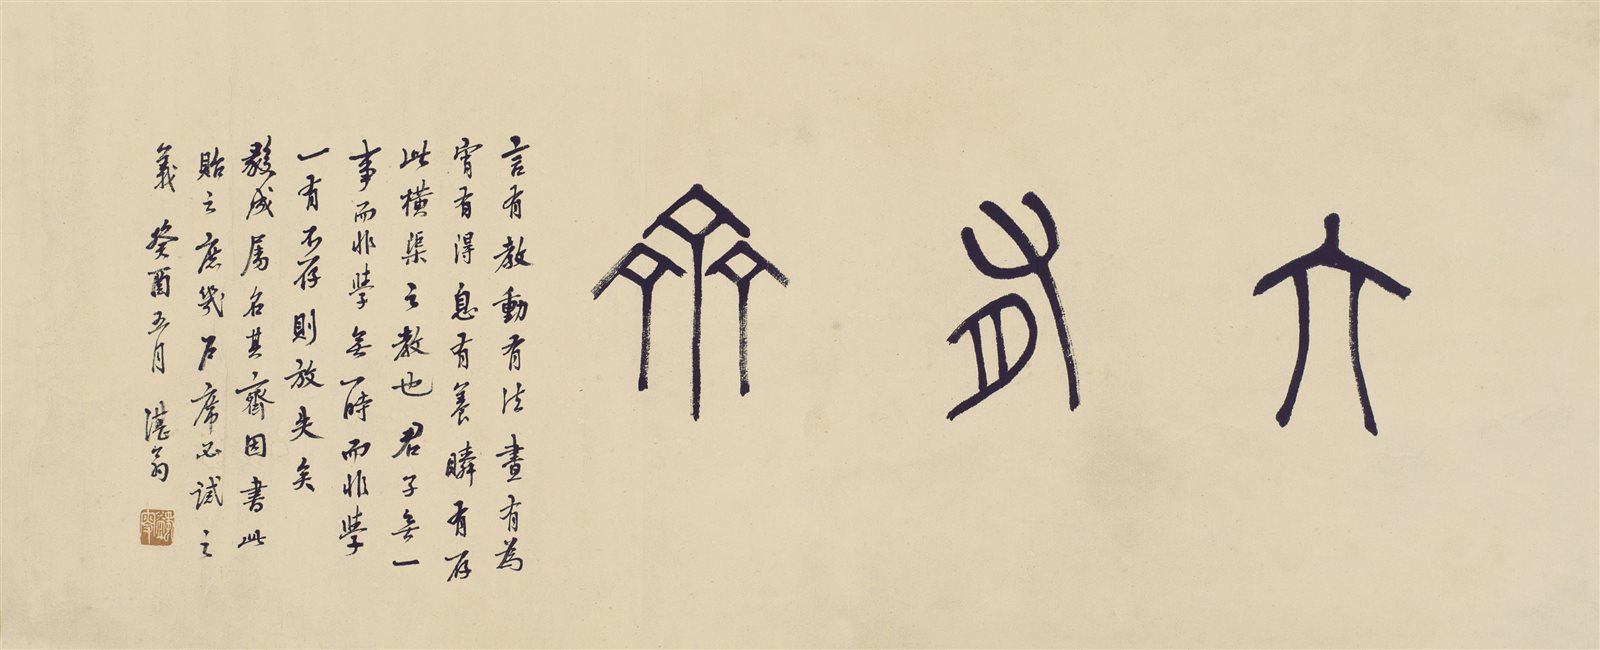 六有齋
言有教動有法晝有為
宵有得息有養瞬有存
此橫渠之教也君子無一
事而非學無一時而非學
一有不存則放失矣
毅成屬名其齋因書此
貽之庶幾戶席必誡之
義 癸酉五月 湛翁
蠲叟